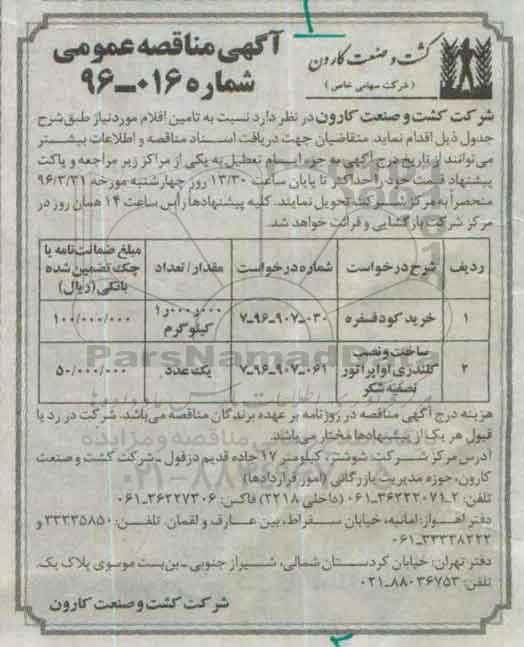 کشت و صنعت کارون
(شرکت سهامی خاص)
آگهی مناقصه عمومی
شماره ۰۱۶ـ۹۶
شرکت کشت و صنعت کارون در نظر دارد نسبت به تامین اقلام مورد نیاز طبق شرح
جدول ذیل اقدام نماید. متقاضیان جهت دریافت اسناد مناقصه و اطلاعات بیشتر
می‌توانند از تاریخ درج آگهی به جز ایام تعطیل به یکی از مراکز زیر مراجعه و پاکت
پیشنهاد قیمت خود را حداکثر تا پایان ساعت ۱۳/۳۰ روز چهارشنبه مورخه ۹۶/۳/۳۱
منحصراً به مرکز شرکت تحویل نمایند. کلیه پیشنهادها راس ساعت ۱۴ همان روز در
مرکز شرکت بازگشایی و قرائت خواهد شد.
ردیف شرح درخواست شماره درخواست مقدار/ تعداد مبلغ ضمانت‌نامه یا چک تضمین شده بانکی (ریال)
۱ خرید کود فسفره ۰۳۰ـ۹۰۷ـ۹۶ـ۷ ۱٫۰۰۰٫۰۰۰ کیلوگرم ۱۰۰/۰۰۰/۰۰۰
۲ ساخت و نصب کلندری اواپراتور تصفیه شکر ۰۶۱ـ۹۰۷ـ۹۶ـ۷ یک عدد ۵۰/۰۰۰/۰۰۰
هزینه درج آگهی مناقصه در روزنامه بر عهده برندگان مناقصه می‌باشد. شرکت در رد یا
قبول هر یک از پیشنهادها مختار می‌باشد.
آدرس مرکز شرکت: شوشتر، کیلومتر ۱۷ جاده قدیم دزفول ـ شرکت کشت و صنعت
کارون، حوزه مدیریت بازرگانی (امور قراردادها)
تلفن: ۲ـ۳۶۲۲۲۰۷۱ـ۰۶۱ (داخلی ۲۲۱۸) فاکس: ۳۶۲۲۷۳۰۶ـ۰۶۱
دفتر اهواز: امانیه، خیابان سقراط، بین عارف و لقمان. تلفن: ۳۳۳۳۵۸۵۰ و
۳۳۳۳۸۲۲۲ـ۰۶۱
دفتر تهران: خیابان کردستان شمالی، شیراز جنوبی ـ بن‌بست موسوی پلاک یک.
تلفن: ۸۸۰۳۶۷۵۳ـ۰۲۱
شرکت کشت و صنعت کارون
ParsNamadData